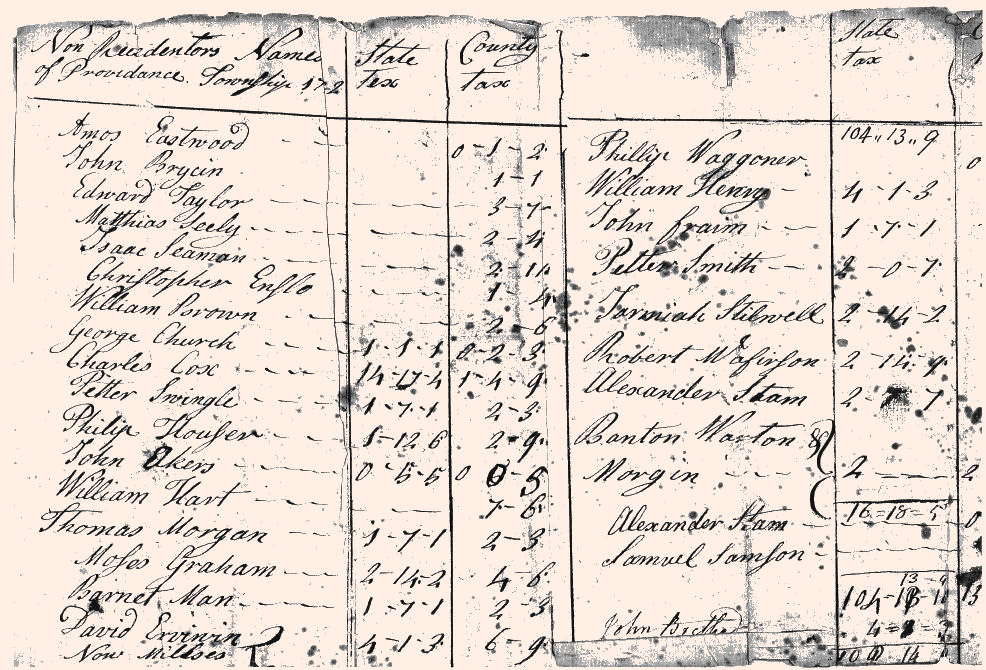 Non Residentors Names State County
of Providance Township 17 2 tex tax
Amos Eastwood 0-1-2
John Brycin 1-1
Edward Taylor 3-7
Matthias Seely 2-4
Isaac Seaman 2-11
Christopher Enslo 1-4
William Brown 2-6
George Church 1-1-1 0-2-3
Charles Cox 14-17-4 1-4-9
Petter Swingle 1-7-1 2-3
Philip Houser 1-12 6 2-9
John Akers 0 5-5 0 0-5
William Hart 7-6
Thomas Morgan 1-7-1 2-3
Moses Graham 2-14-2 4-6
Barnet Man 1-7-1 2-3
David Erwinin 4-1-3 6-9
Now Millses
State
tax
104,,13,,9
Phillip Waggoner 0
William Henry 4-1-3
John fraim 1-7-1
Petter Smith 2-0-7
Jarmiah Stilwell 2-14-2
Robert 2-14-9
Alexander Stam 2-7 7
Banton Warton &
Morgin 2 2
16=18-5
Alexander Stam 0
Samuel Samson
13-9
104-18 11 13
John
4=
100 14